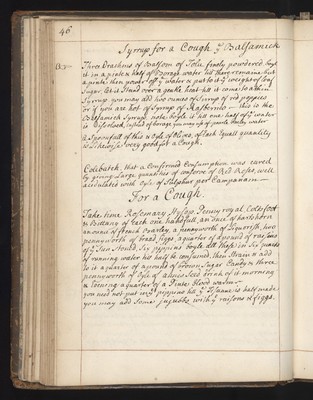 46
Syrrup for a Cough ye Balsamick
Three Drachms of Balsom of Tolu finely powdered boyl
it in a pinte & half of Borage water till there remaine but
a pinte then power of ye water & put to it ye weight of Loaf
Sugar let it stand over a gentle heat till it come to a thin
Syrrup. you may add two ounces of Syrrup of red poppies
or if you are hot of Syrrup of Rasberries — this is the
Balsamick Syrrup note, boyle it till one half of ye water
is
A Spoonfull of this & Oyle of Olives, of Each Equall quantity
is Likewise very good for a Cough.
Colebatch, that a Confirmed Consumption was cured
by giving Large quantities of conserve of Red Roses, well
acidulated with Oyle of Sulphur per Campanam —
For a Cough.
Take, time Rosemary Hysop, Penny royal, Coltsfoot
in Brittany of Each one handfull, an of harts horn
an ounce of french Barley, a pennyworth of Liquorish, two
pennyworth of figgs, a quarter of a pound of raisons
of ye Sun stoned, Six pippins boyle all these in Six quarts
of running water till half be consumed, then Strain & add
to it a quarter of a pound of brown Sugar Candy & three
pennyworth of Oyle of almonds drink of it morning
& Evening a quarter of a pinte blood warm —
you need not put in ye pippins till ye is half made
you may add Some jujubs with ye raisons & figgs.